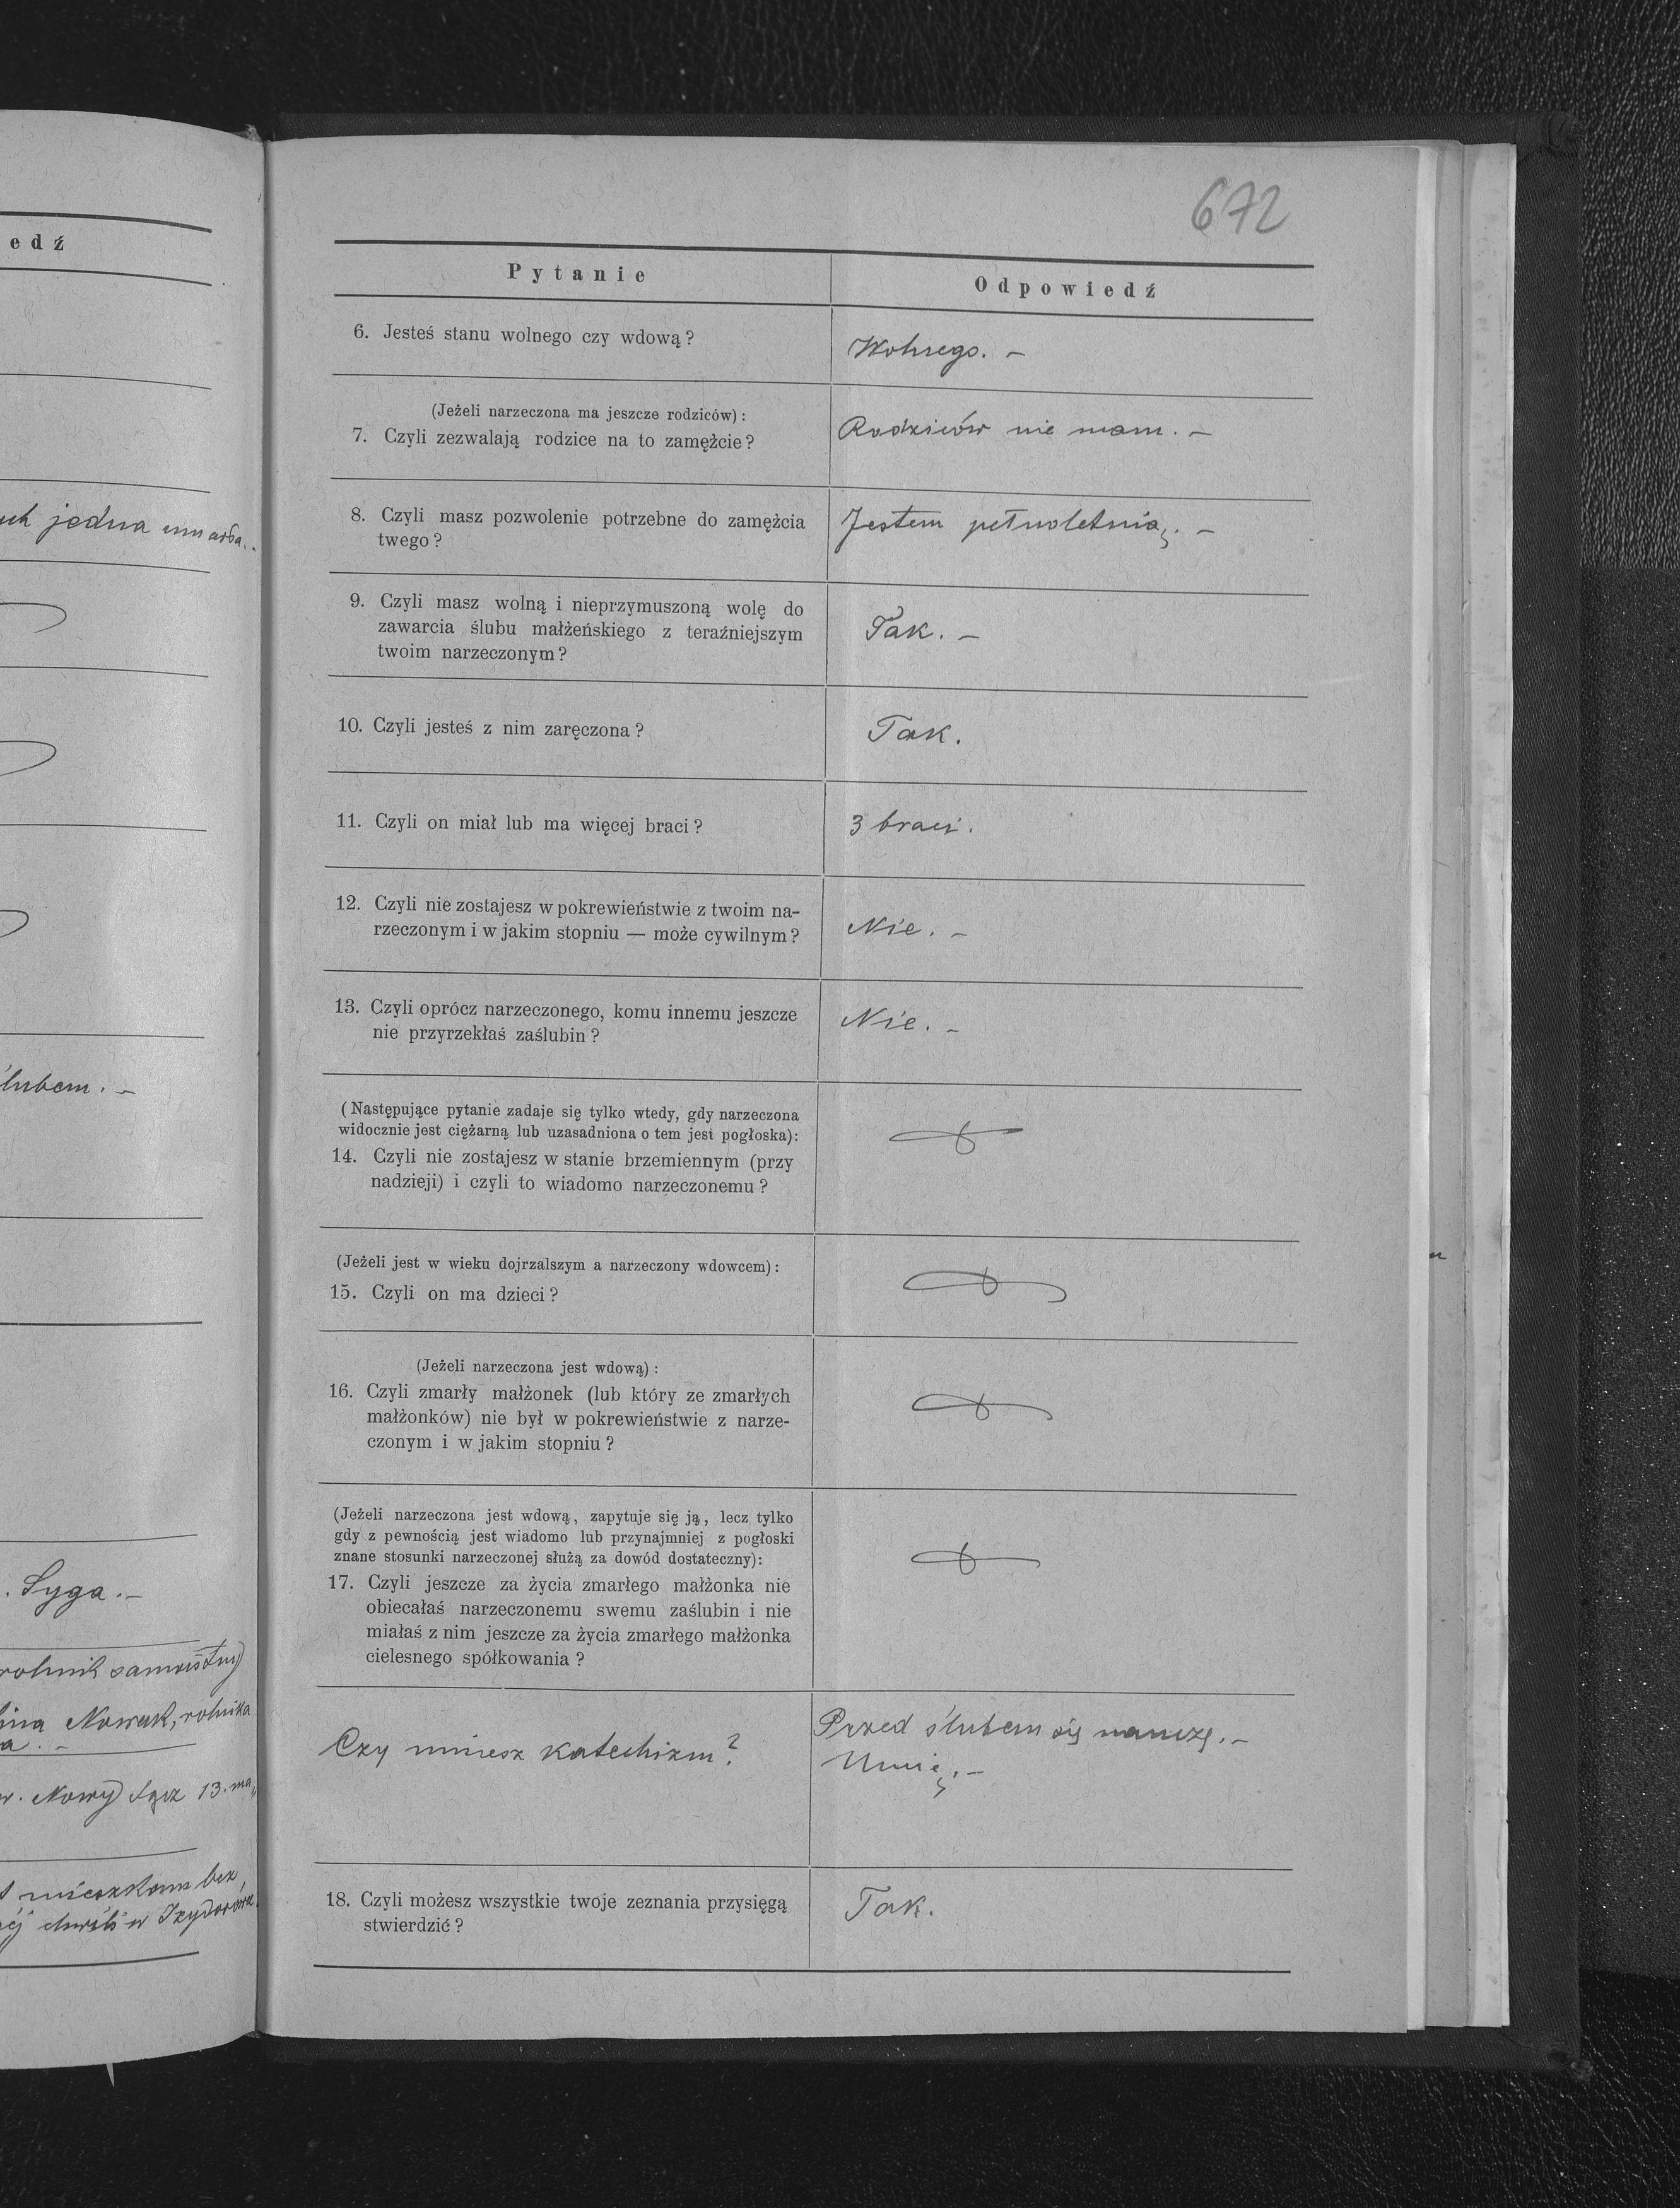 edź
jedna umarła.
ślubem. –
. Syga. –
rolnik samoistny
Nowak, rolnika
a. –
w. Nowy Sącz 13. ma„
mieszkam bez
chwili w Izydorówce
672
Pytanie
Odpowiedź
6. Jesteś stanu wolnego czy wdową?
Wolnego. –
(Jeżeli narzeczona ma jeszcze rodziców):
7. Czyli zezwalają rodzice na to zamężcie?
Rodziców nie mam. –
8. Czyli masz pozwolenie potrzebne do zamężcia
twego?
Jestem pełnoletnią. –
9. Czyli masz wolną i nieprzymuszoną wolę do
zawarcia ślubu małżeńskiego z teraźniejszym
twoim narzeczonym?
Tak. –
10. Czyli jesteś z nim zaręczona?
Tak.
11. Czyli on miał lub ma więcej braci?
3 braci.
12. Czyli nie zostajesz w pokrewieństwie z twoim na-
rzeczonym i w jakim stopniu — może cywilnym?
Nie. –
13. Czyli oprócz narzeczonego, komu innemu jeszcze
nie przyrzekłaś zaślubin?
Nie. –
(Następujące pytanie zadaje się tylko wtedy, gdy narzeczona
widocznie jest ciężarną lub uzasadniona o tem jest pogłoska):
14. Czyli nie zostajesz w stanie brzemiennym (przy
nadzieji) i czyli to wiadomo narzeczonemu?
(Jeżeli jest w wieku dojrzalszym a narzeczony wdowcem):
15. Czyli on ma dzieci?
(Jeżeli narzeczona jest wdową):
16. Czyli zmarły małżonek (lub który ze zmarłych
małżonków) nie był w pokrewieństwie z narze-
czonym i w jakim stopniu?
(Jeżeli narzeczona jest wdową, zapytuje się ją, lecz tylko
gdy z pewnością jest wiadomo lub przynajmniej z pogłoski
znane stosunki narzeczonej służą za dowód dostateczny):
17. Czyli jeszcze za życia zmarłego małżonka nie
obiecałaś narzeczonemu swemu zaślubin i nie
miałaś z nim jeszcze za życia zmarłego małżonka
cielesnego spółkowania?
Czy umiesz katechizm?
Przed ślubem się nauczę. –
Umię. –
18. Czyli możesz wszystkie twoje zeznania przysięgą
stwierdzić?
Tak.